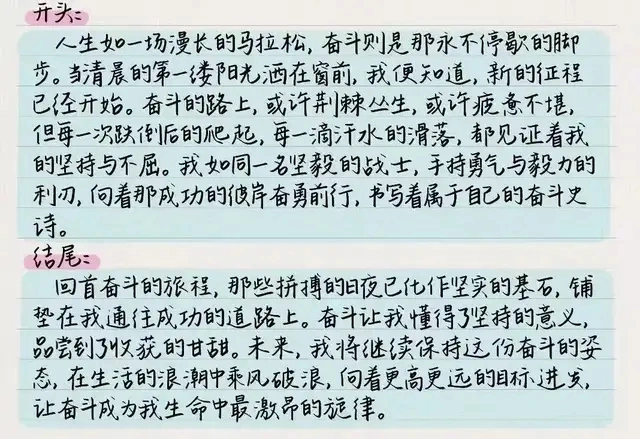 开头:
人生如一场漫长的马拉松,奋斗则是那永不停歇的脚
步。当清晨的第一缕阳光洒在窗前,我便知道,新的征程
已经开始。奋斗的路上,或许荆棘丛生,或许疲惫不堪,
但每一次跌倒后的爬起,每一滴汗水的滑落,都见证着我
的坚持与不屈。我如同一名坚毅的战士,手持勇气与毅力的
利刃,向着那成功的彼岸奋勇前行,书写着属于自己的奋斗史
诗。
结尾:
回首奋斗的旅程,那些拼搏的日夜已化作坚实的基石,铺
垫在我通往成功的道路上。奋斗让我懂得了坚持的意义,
品尝到了收获的甘甜。未来,我将继续保持这份奋斗的姿
态,在生活的浪潮中乘风破浪,向着更高更远的目标进发,
让奋斗成为我生命中最激昂的旋律。